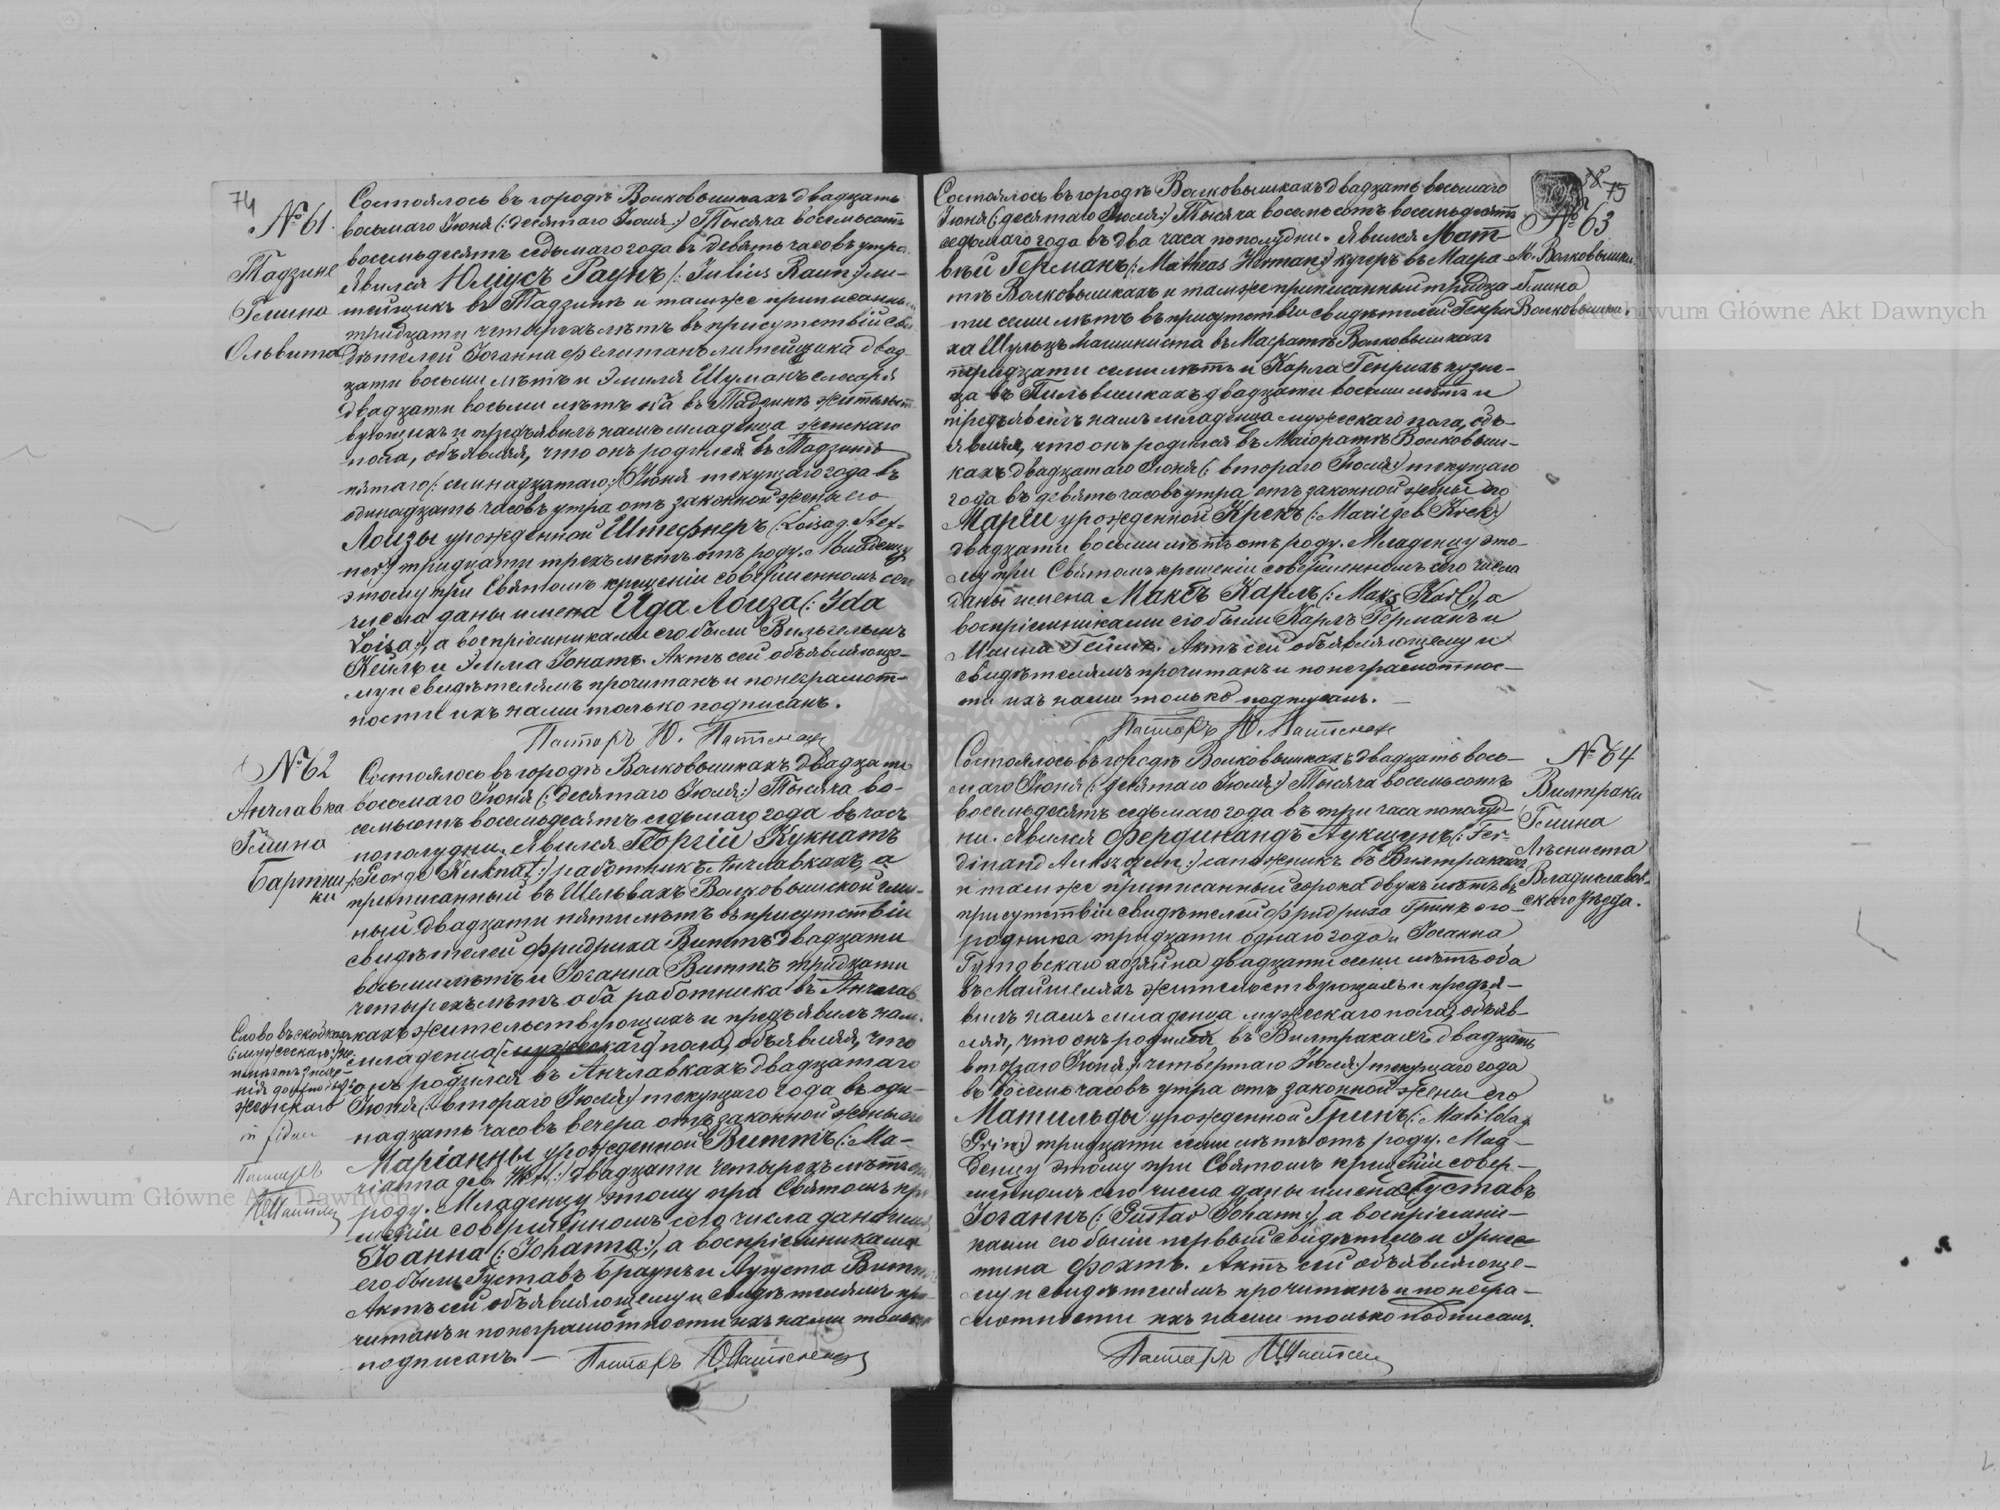 74
№ 61
Тадзине
Гмина
Ольвита
Состоялось въ городѣ Волковышкахъ двадцать
восьмаго Іюня (: десятаго Іюля :) Тысяча восемьсотъ
восемьдесятъ седьмаго года въ девять часовъ утра.
Явился Юліусъ Раунъ (: Julius Raun :) ли-
тейщикъ въ Тадзинѣ и тамже приписанный
тридцати четырехъ лѣтъ въ присутствіи сви-
дѣтелей Іоганна литейщика двад-
цати восьми лѣтъ и Эмиля Шуманъ слесаря
двадцати восьми лѣтъ оба въ Тадзинѣ жительст-
вующихъ и предъявилъ намъ младенца женскаго
пола, объявляя, что онъ родился въ Тадзинѣ
пятаго (: семнадцатаго :) Іюня текущаго года въ
одинадцать часовъ утра отъ законной жены его
Лоизы урожденной Штефнеръ (: Loisa g. Stef-
ner :) тридцати трехъ лѣтъ отъ роду. Младенцу
этому при Святомъ крещеніи совершенномъ сего
числа даны имена Ида Лоиза (: Ida
Loisa :), а воспріемниками его были Вильгельмъ
Кейль и Эмма Іонатъ. Актъ сей объявляюще-
му и свидѣтелямъ прочитанъ и по неграмот-
ности ихъ нами только подписанъ.
Пасторъ Ю.
№ 62
Анчлавка
Гмина
Бартни-
ки
Состоялось въ городѣ Волковышкахъ двадцать
восьмаго Іюня (: десятаго Іюля :) Тысяча во-
семьсотъ восемьдесятъ седьмаго года въ часъ
пополудни. Явился Георгій Кукнатъ
(: George Kuknat :) работникъ въ Анчлавкахъ, а
приписанный въ Шельвахъ Волковышской гми-
ны двадцати пяти лѣтъ въ присутствіи
свидѣтелей Фридриха Виттъ двадцати
восьми лѣтъ и Іоганна Виттъ тридцати
четырехъ лѣтъ оба работника въ Анчлав-
кахъ жительствующихъ и предъявилъ намъ
младенца [мужескаго] пола, объявляя, что
онъ родился въ Анчлавкахъ двадцатаго
Іюня (: втораго Іюля :) текущаго года въ оди-
надцать часовъ вечера отъ законной жены его
Маріанны урожденной Виттъ (: Ma-
rianna geb. Witt :) двадцати четырехъ лѣтъ отъ
роду. Младенцу этому при Святомъ кре-
щеніи совершенномъ сего числа дано имя
Іоанна (: Johanna :), а воспріемниками
его были Густавъ Браунъ и Августа Виттъ
Актъ сей объявляющему и свидѣтелямъ про-
читанъ и по неграмотности ихъ нами только
подписанъ. —
Слово въ скобкахъ
(: мужескаго :)
женскаго
in fidem
Пасторъ
Пасторъ
79
№ 63
М. Волковышки
Гмина
Волковышки.
Состоялось въ городѣ Волковышкахъ двадцать восьмаго
Іюня (: десятаго Іюля :) Тысяча восемьсотъ восемьдесятъ
седьмаго года въ два часа пополудни. Явился Мат-
вѣй Германъ (: Matheas Herman :) кучеръ въ Маіора-
тѣ Волковышкахъ и тамже приписанный тридца-
ти семи лѣтъ въ присутствіи свидѣтелей Генри-
ха Шульцъ машиниста въ Маіоратѣ Волковышкахъ
тридцати семи лѣтъ и Карла Генрихъ кузне-
ца въ Пильвишкахъ двадцати восьми лѣтъ и
предъявилъ намъ младенца мужескаго пола, объ-
являя, что онъ родился въ Маіоратѣ Волковыш-
кахъ двадцатаго Іюня (: втораго Іюля :) текущаго
года въ девять часовъ утра отъ законной жены его
Маріи урожденной Крекъ (: Marie geb. Krek :)
двадцати восьми лѣтъ отъ роду. Младенцу это-
му при Святомъ крещеніи совершенномъ сего числа
даны имена Максъ Карлъ (: Maks Karl :), а
воспріемниками его были Карлъ Германъ и
Актъ сей объявляющему и
свидѣтелямъ прочитанъ и по неграмотнос-
ти ихъ нами только подписанъ. —
Пасторъ Ю.
№ 64
Витраки
Гмина
Владиславов-
скаго уѣзда.
Состоялось въ городѣ Волковышкахъ двадцать вось-
маго Іюня (: десятаго Іюля :) Тысяча восемьсотъ
восемьдесятъ седьмаго года въ три часа пополуд-
ни. Явился Фердинандъ (: Fer-
dinand :) сапожникъ въ Витракахъ
и тамже приписанный сорока двухъ лѣтъ въ
присутствіи свидѣтелей Фридриха Гринъ ого-
родника тридцати однаго года и Іоганна
Гутовскаго хозяина двадцати семи лѣтъ оба
въ жительствующихъ и предъя-
вилъ намъ младенца мужескаго пола, объяв-
ляя, что онъ родился въ Витракахъ двадцать
втораго Іюня (: четвертаго Іюля :) текущаго года
въ восемь часовъ утра отъ законной жены его
Матильды урожденной Гринъ (: Matilda g.
Grin :) тридцати семи лѣтъ отъ роду. Мла-
денцу этому при Святомъ крещеніи совер-
шенномъ сего числа даны имена Густавъ
Іоганнъ (: Gustav Johann :), а воспріемни-
ками его были первый свидѣтель и Эрнес-
тина Фохтъ. Актъ сей объявляюще-
му и свидѣтелямъ прочитанъ и по негра-
мотности ихъ нами только подписанъ.
Пасторъ
Archiwum Główne Akt Dawnych
Archiwum Główne Akt Dawnych